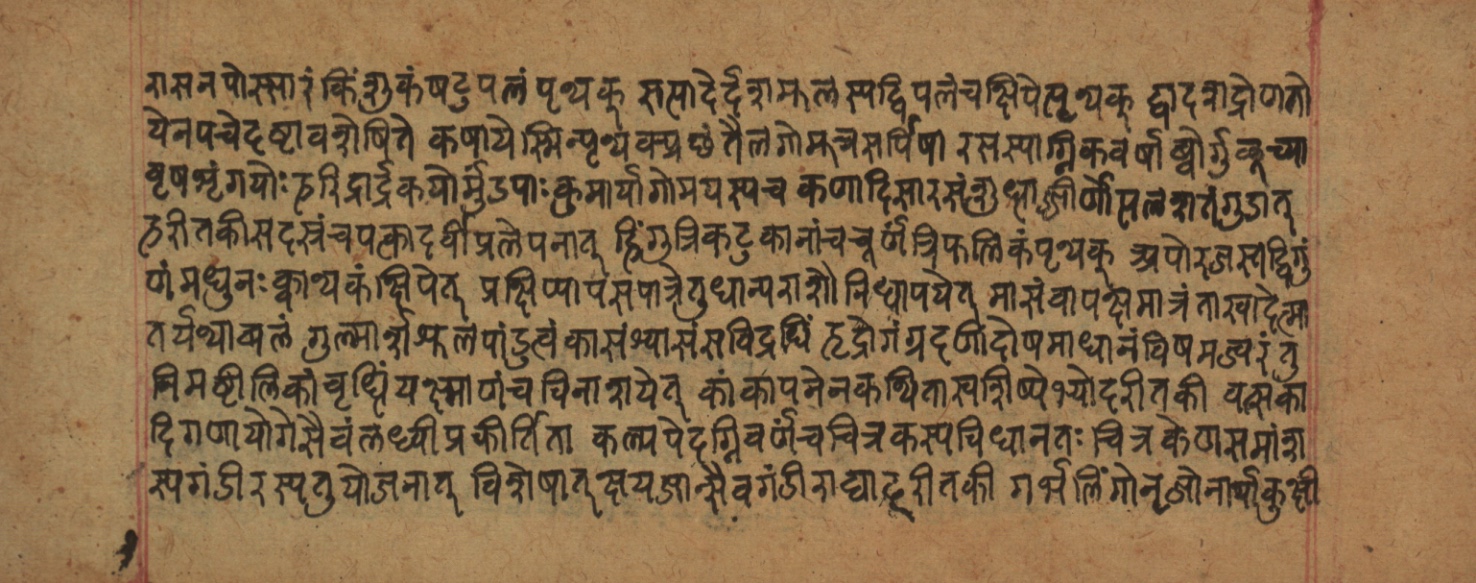 रासनपोस्सारं किंशुकंषटुपलं पृथ्यक् सत्सादेर्दशमूलस्यद्विपलंचक्षिपेत्पृथ्यक् द्वादशद्रोणतो
येनपचेदष्टावशेषिते कषायेस्मिन्पृथ्यक्प्रछंतैलगोमूत्रसर्पिषा रसस्याग्निकवर्षाभ्वोर्गुडूच्या
वृषभृंगयोः हरिद्रार्द्रकयोर्मुडपाः कुमार्यागोमयस्यच कणादिसारसंशुध्धा पलशतंगुडात्
हरीतकीसहस्रंचपत्कादर्वीप्रलेपनात् हिंगुत्रिकटुकानांचचूर्णत्रिफलिकंपृथ्यक् अपोरजस्यद्विगुं
णंमधुनः क्वाथ्यकंक्षिपेत् प्रक्षिप्यापसपात्रेतुधान्यराशौनिधापयेत् मासंवापक्षमात्रंताखादेत्मा
तर्यथ्याबलं गुल्मार्शोशूलपांडुत्वंकासंश्वासंसविद्रधिं हृद्रोगंग्रहणीदोषमाध्मानंविषमज्वरंतु
निमष्टीलिकांवृध्धिंयक्ष्माणंचविनाशयेत् कांकायनेनकथितास्यशिष्येभ्योहरीतकी वत्सका
दिगणायोगेसैवंलध्वीप्रकीर्तिता कल्पयेदग्निवर्णंचचित्रकस्यविधानतः चित्रकेणसमांश
स्यगंडीरस्यतुयोजनात् विशेषात्क्षयजान्सैवगंडीराद्याहरीतकी गर्भलिंगोनृजोनार्याकुक्षी